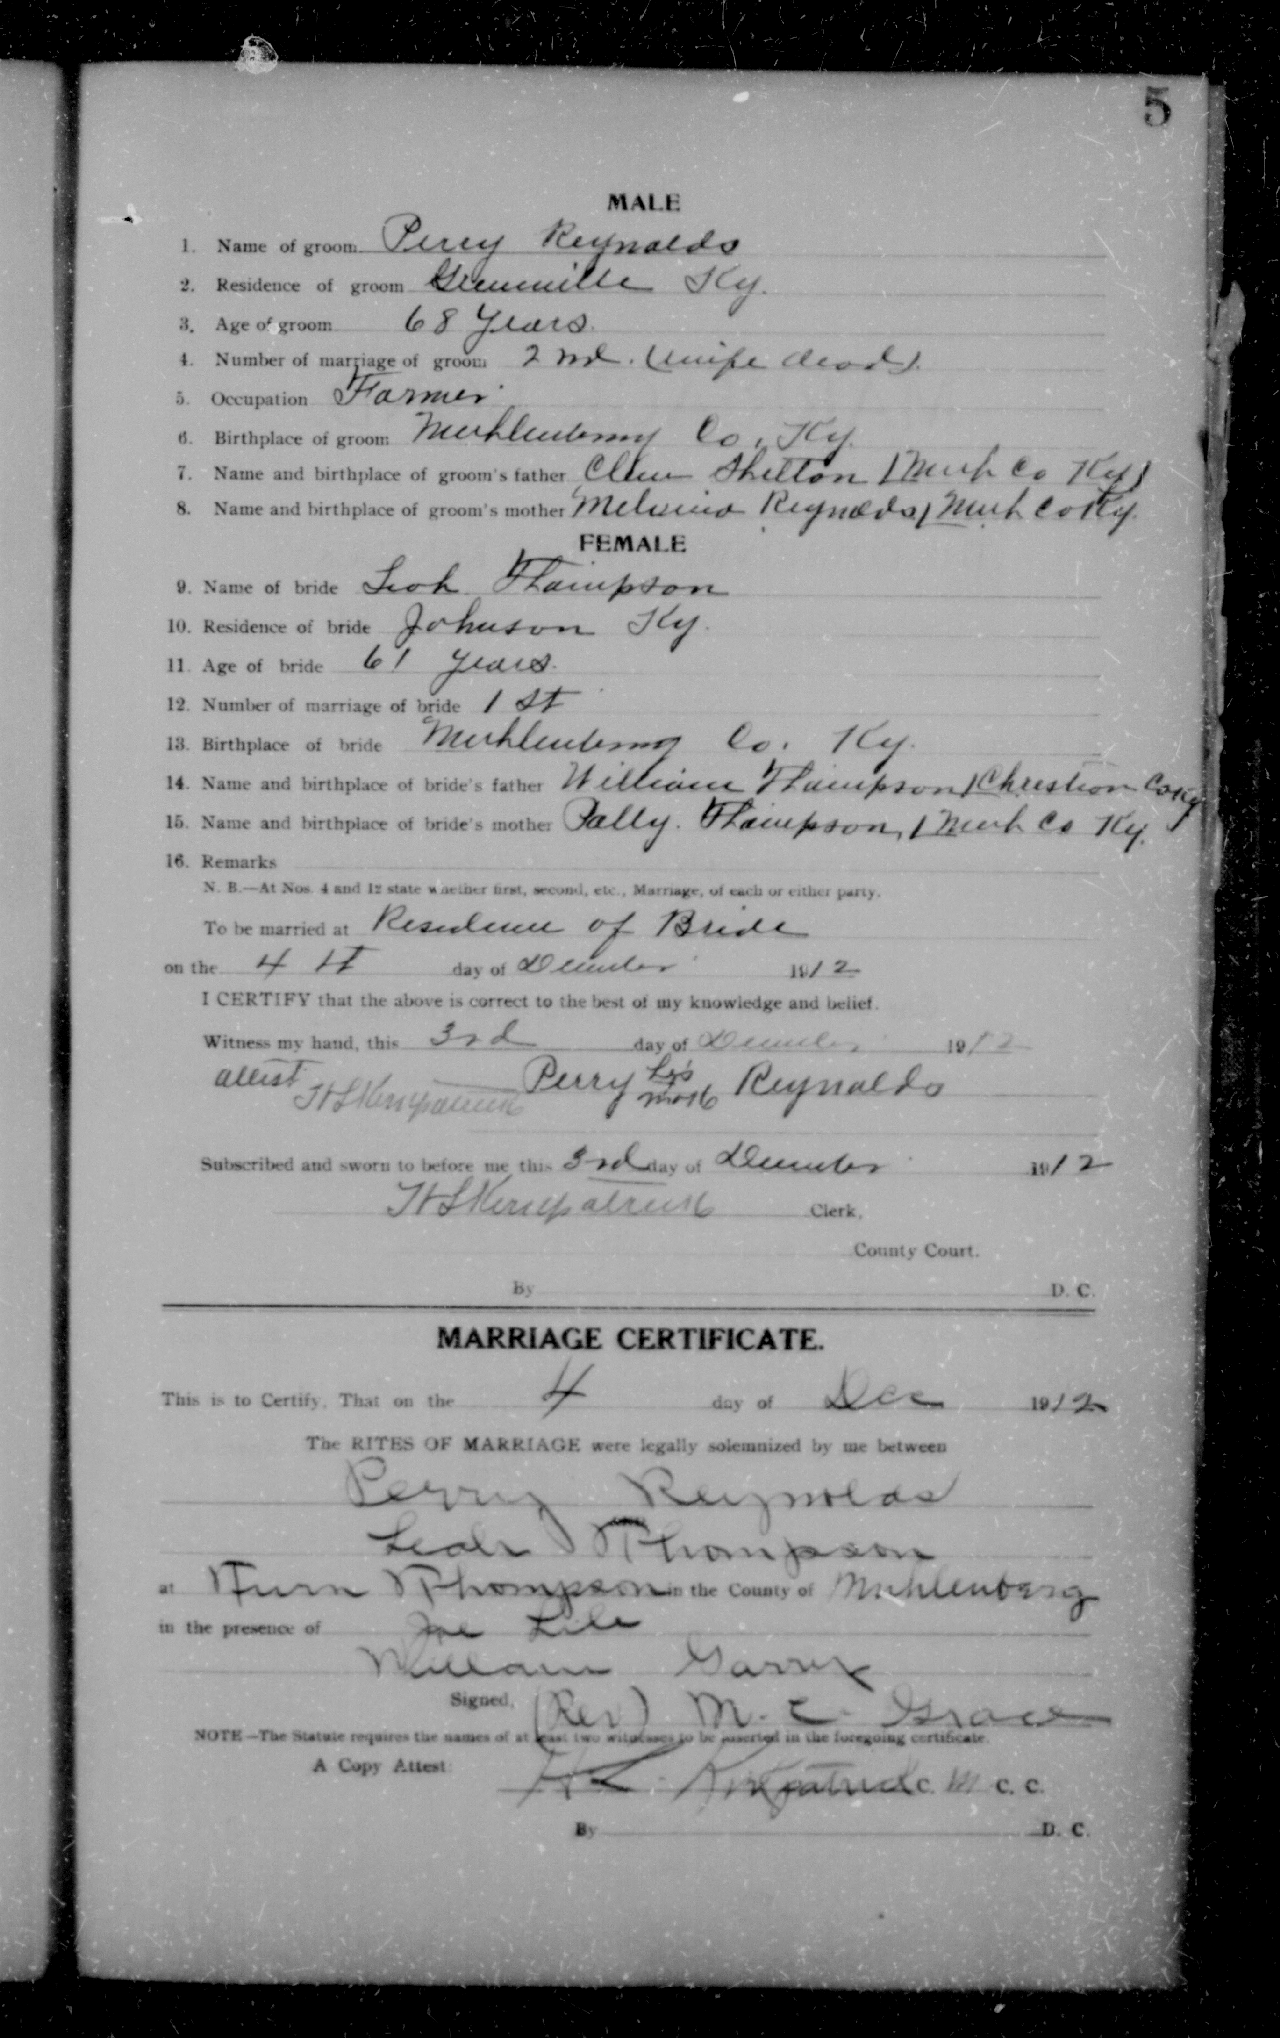 5
MALE
1. Name of groom Perry Reynolds
2. Residence of groom Greenville Ky.
3. Age of groom 68 Years.
4. Number of marriage of groom 2nd. (wife dead).
5. Occupation Farmer
6. Birthplace of groom Muhlenberg Co, Ky.
7. Name and birthplace of groom's father Shelton (Muh Co Ky)
8. Name and birthplace of groom's mother Melvina Reynolds, (Muh Co Ky.
FEMALE
9. Name of bride Leah Thompson
10. Residence of bride Johnson Ky.
11. Age of bride 61 years.
12. Number of marriage of bride 1 st
13. Birthplace of bride Muhlenberg Co. Ky.
14. Name and birthplace of bride's father William Thompson (Christian Co Ky
15. Name and birthplace of bride's mother Thompson, (Muh Co Ky.
16. Remarks
N. B.—At Nos. 4 and 12 state whether first, second, etc., Marriage, of each or either party.
To be married at Residence of Bride
on the 4th day of December 1912
I CERTIFY that the above is correct to the best of my knowledge and belief.
Witness my hand, this 3rd day of December 1912
attest H L Kirkpatrick Perry his mark Reynolds
Subscribed and sworn to before me this 3rd day of December 1912
H L Kirkpatrick Clerk,
County Court.
By D. C.
MARRIAGE CERTIFICATE.
This is to Certify, That on the 4 day of Dec 1912
The RITES OF MARRIAGE were legally solemnized by me between
Perry Reynolds
Leah Thompson
at Thompson in the County of Muhlenberg
in the presence of Joe Lile
William
Signed, (Rev) M. C. Grace
NOTE—The Statute requires the names of at least two witnesses to be inserted in the foregoing certificate.
A Copy Attest: H L. Kirkpatrick C. M C. C.
By D. C.